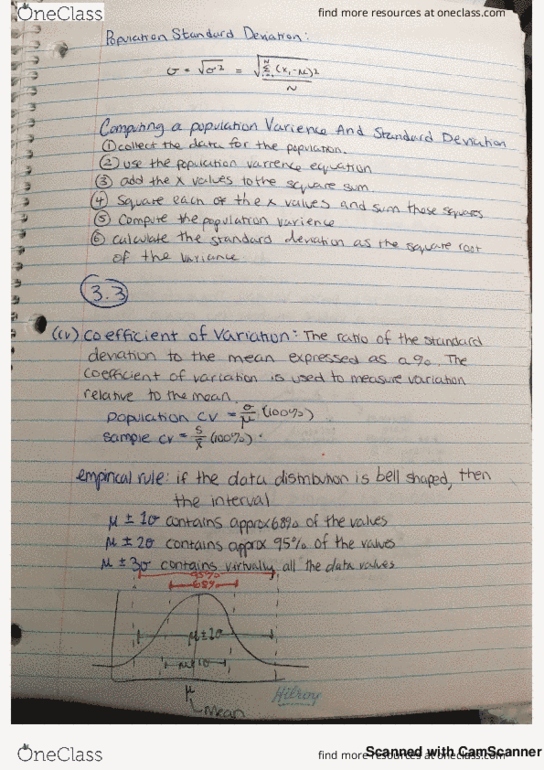 OneClass
find more resources at oneclass.com
Population Standard Deviation:
σ = √σ² = √Σ(xi-μ)²
N
Computing a population Varience And Standard Deviation
① collect the data for the population.
② use the population varrence equation
③ add the x values to the square sum
④ square each of the x values and sum those squares
⑤ compute the population varience
⑥ calculate the standard deviation as the square root
of the variance.
3.3
(cv) coefficient of variation: The ratio of the standard
deviation to the mean expressed as a %. The
coefficient of variation is used to measure variation
relative to the mean.
population cv = σ/μ (100%)
sample cv = s/x̄ (100%).
empirical rule: if the data distribution is bell shaped, then
the interval
μ ± 1σ contains approx 68% of the values
μ ± 2σ contains approx 95% of the values
μ ± 3σ contains virtually all the data values
95%
68%
μ±2σ
μ±1σ
μ
Mean
Hilroy
OneClass
find more resources at oneclass.com
Scanned with CamScanner